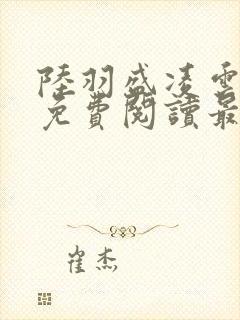 陸羽盛凌雲
免費閱讀最
崔杰